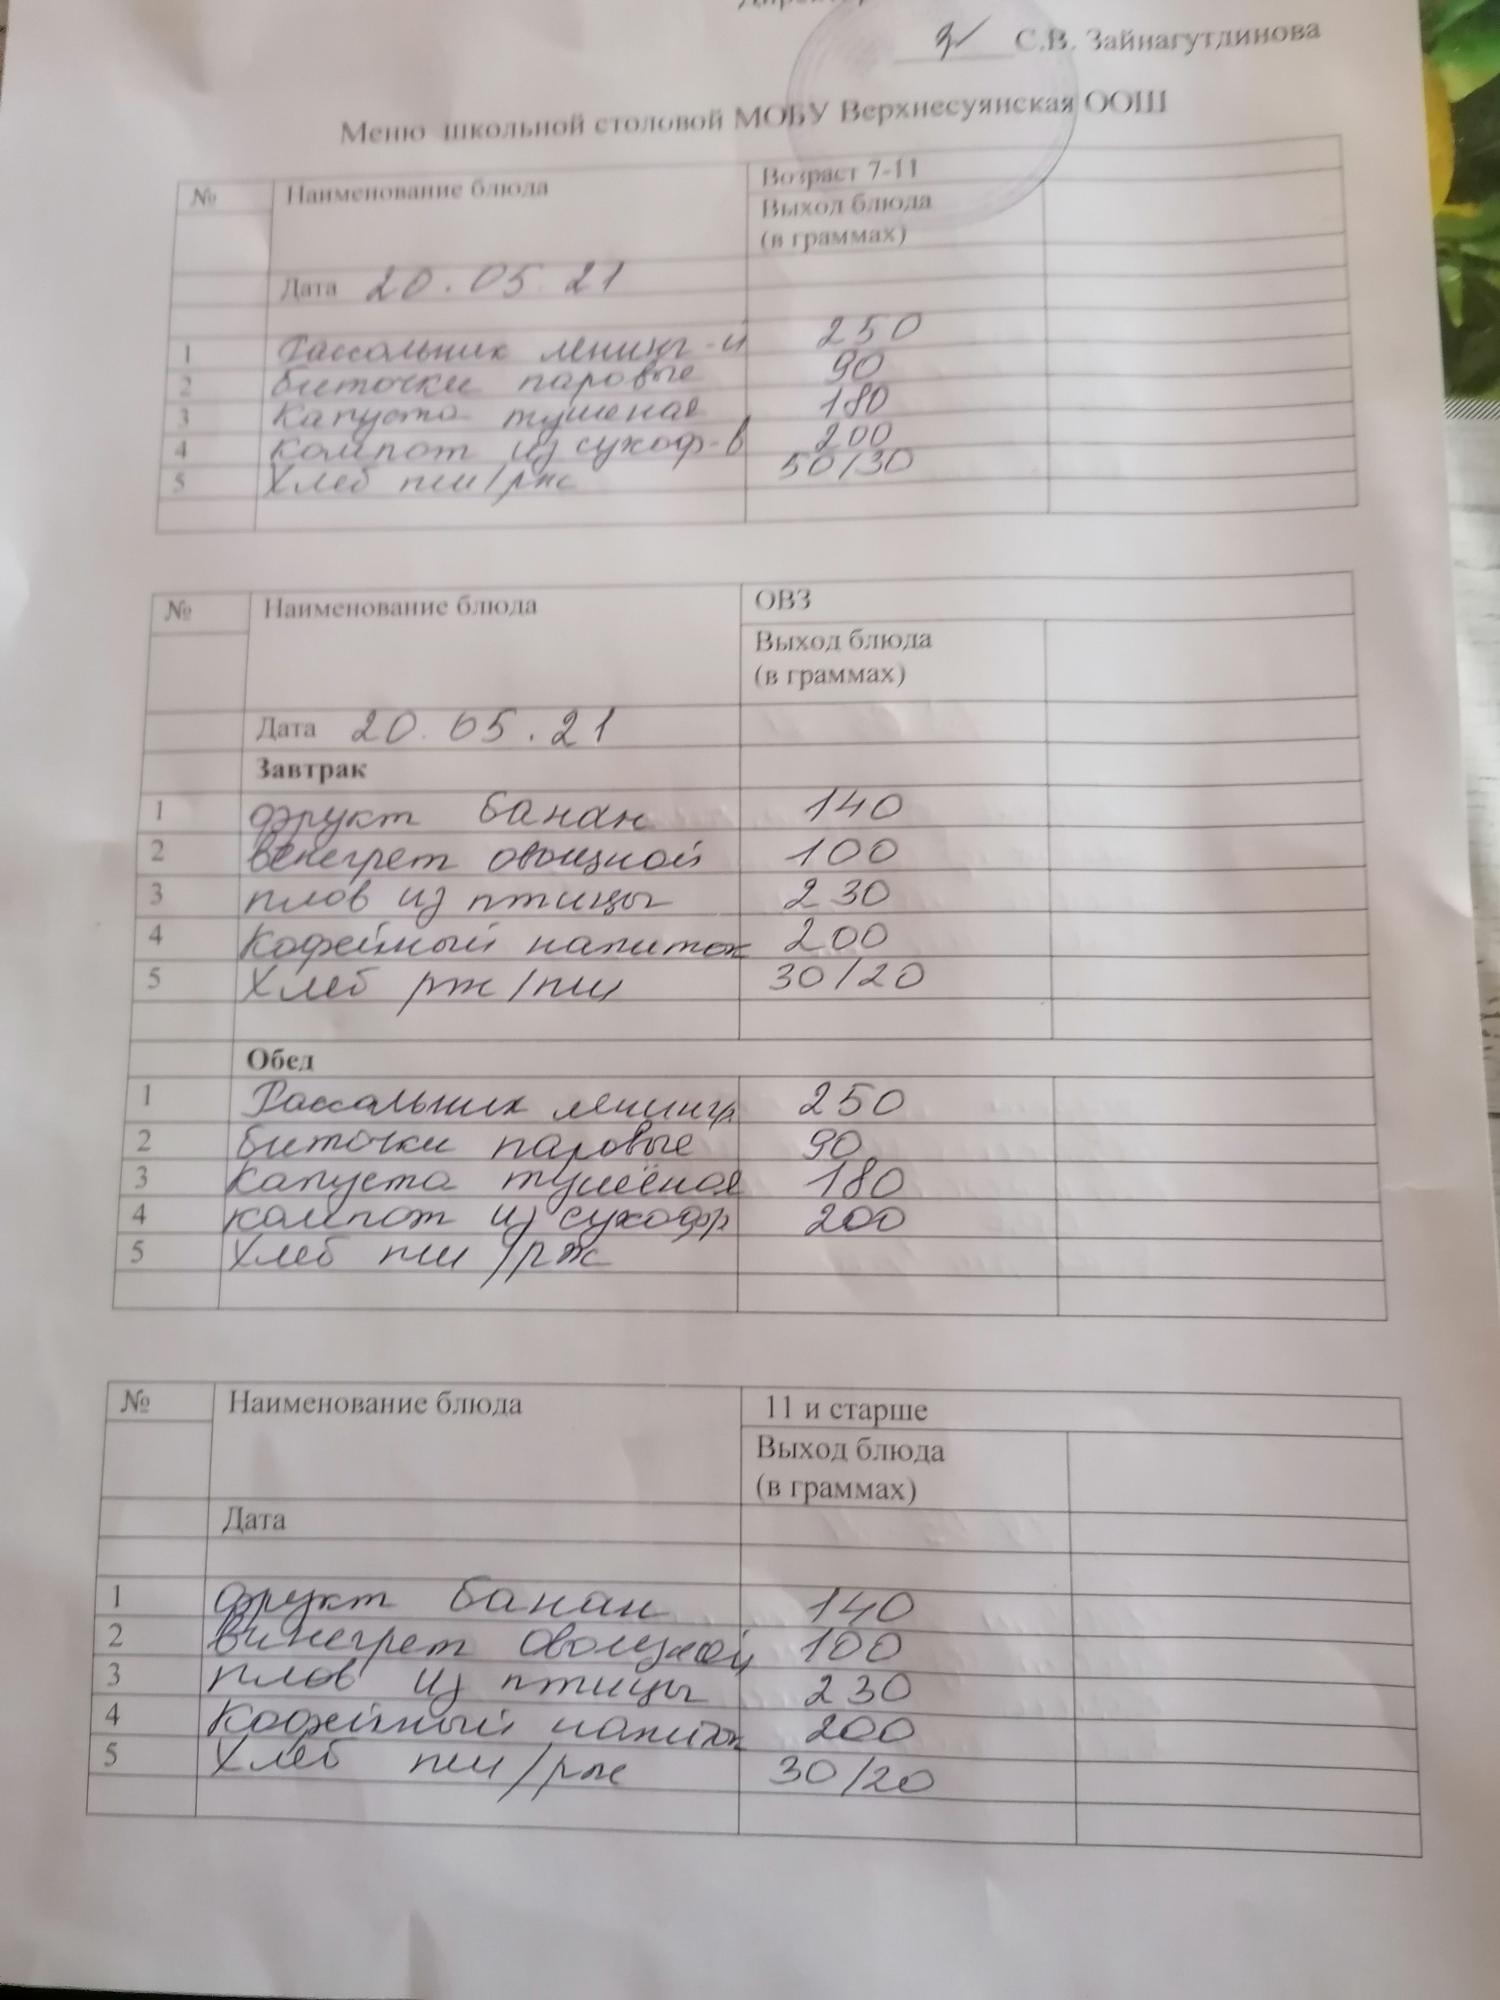 Директор
С.В. Зайнагутдинова
Меню школьной столовой МОБУ Верхнесуянская ООШ
№ Наименование блюда Возраст 7-11
Выход блюда
(в граммах)
Дата 20.05.21
1 Рассольник ленинг-й 250
2 биточки паровые 90
3 Капуста тушеная 180
4 Компот из сухоф-в 200
5 Хлеб пш/рж 50/30
№ Наименование блюда ОВЗ
Выход блюда
(в граммах)
Дата 20.05.21
Завтрак
1 фрукт банан 140
2 венегрет овощной 100
3 плов из птицы 230
4 Кофейный напиток 200
5 Хлеб рж/пш 30/20
Обед
1 Рассольник ленингр 250
2 биточки паровые 90
3 Капуста тушёная 180
4 компот из сухофр 200
5 Хлеб пш/рж
№ Наименование блюда 11 и старше
Выход блюда
(в граммах)
Дата
1 фрукт банан 140
2 винегрет овощной 100
3 плов из птицы 230
4 Кофейный напиток 200
5 Хлеб пш/рж 30/20